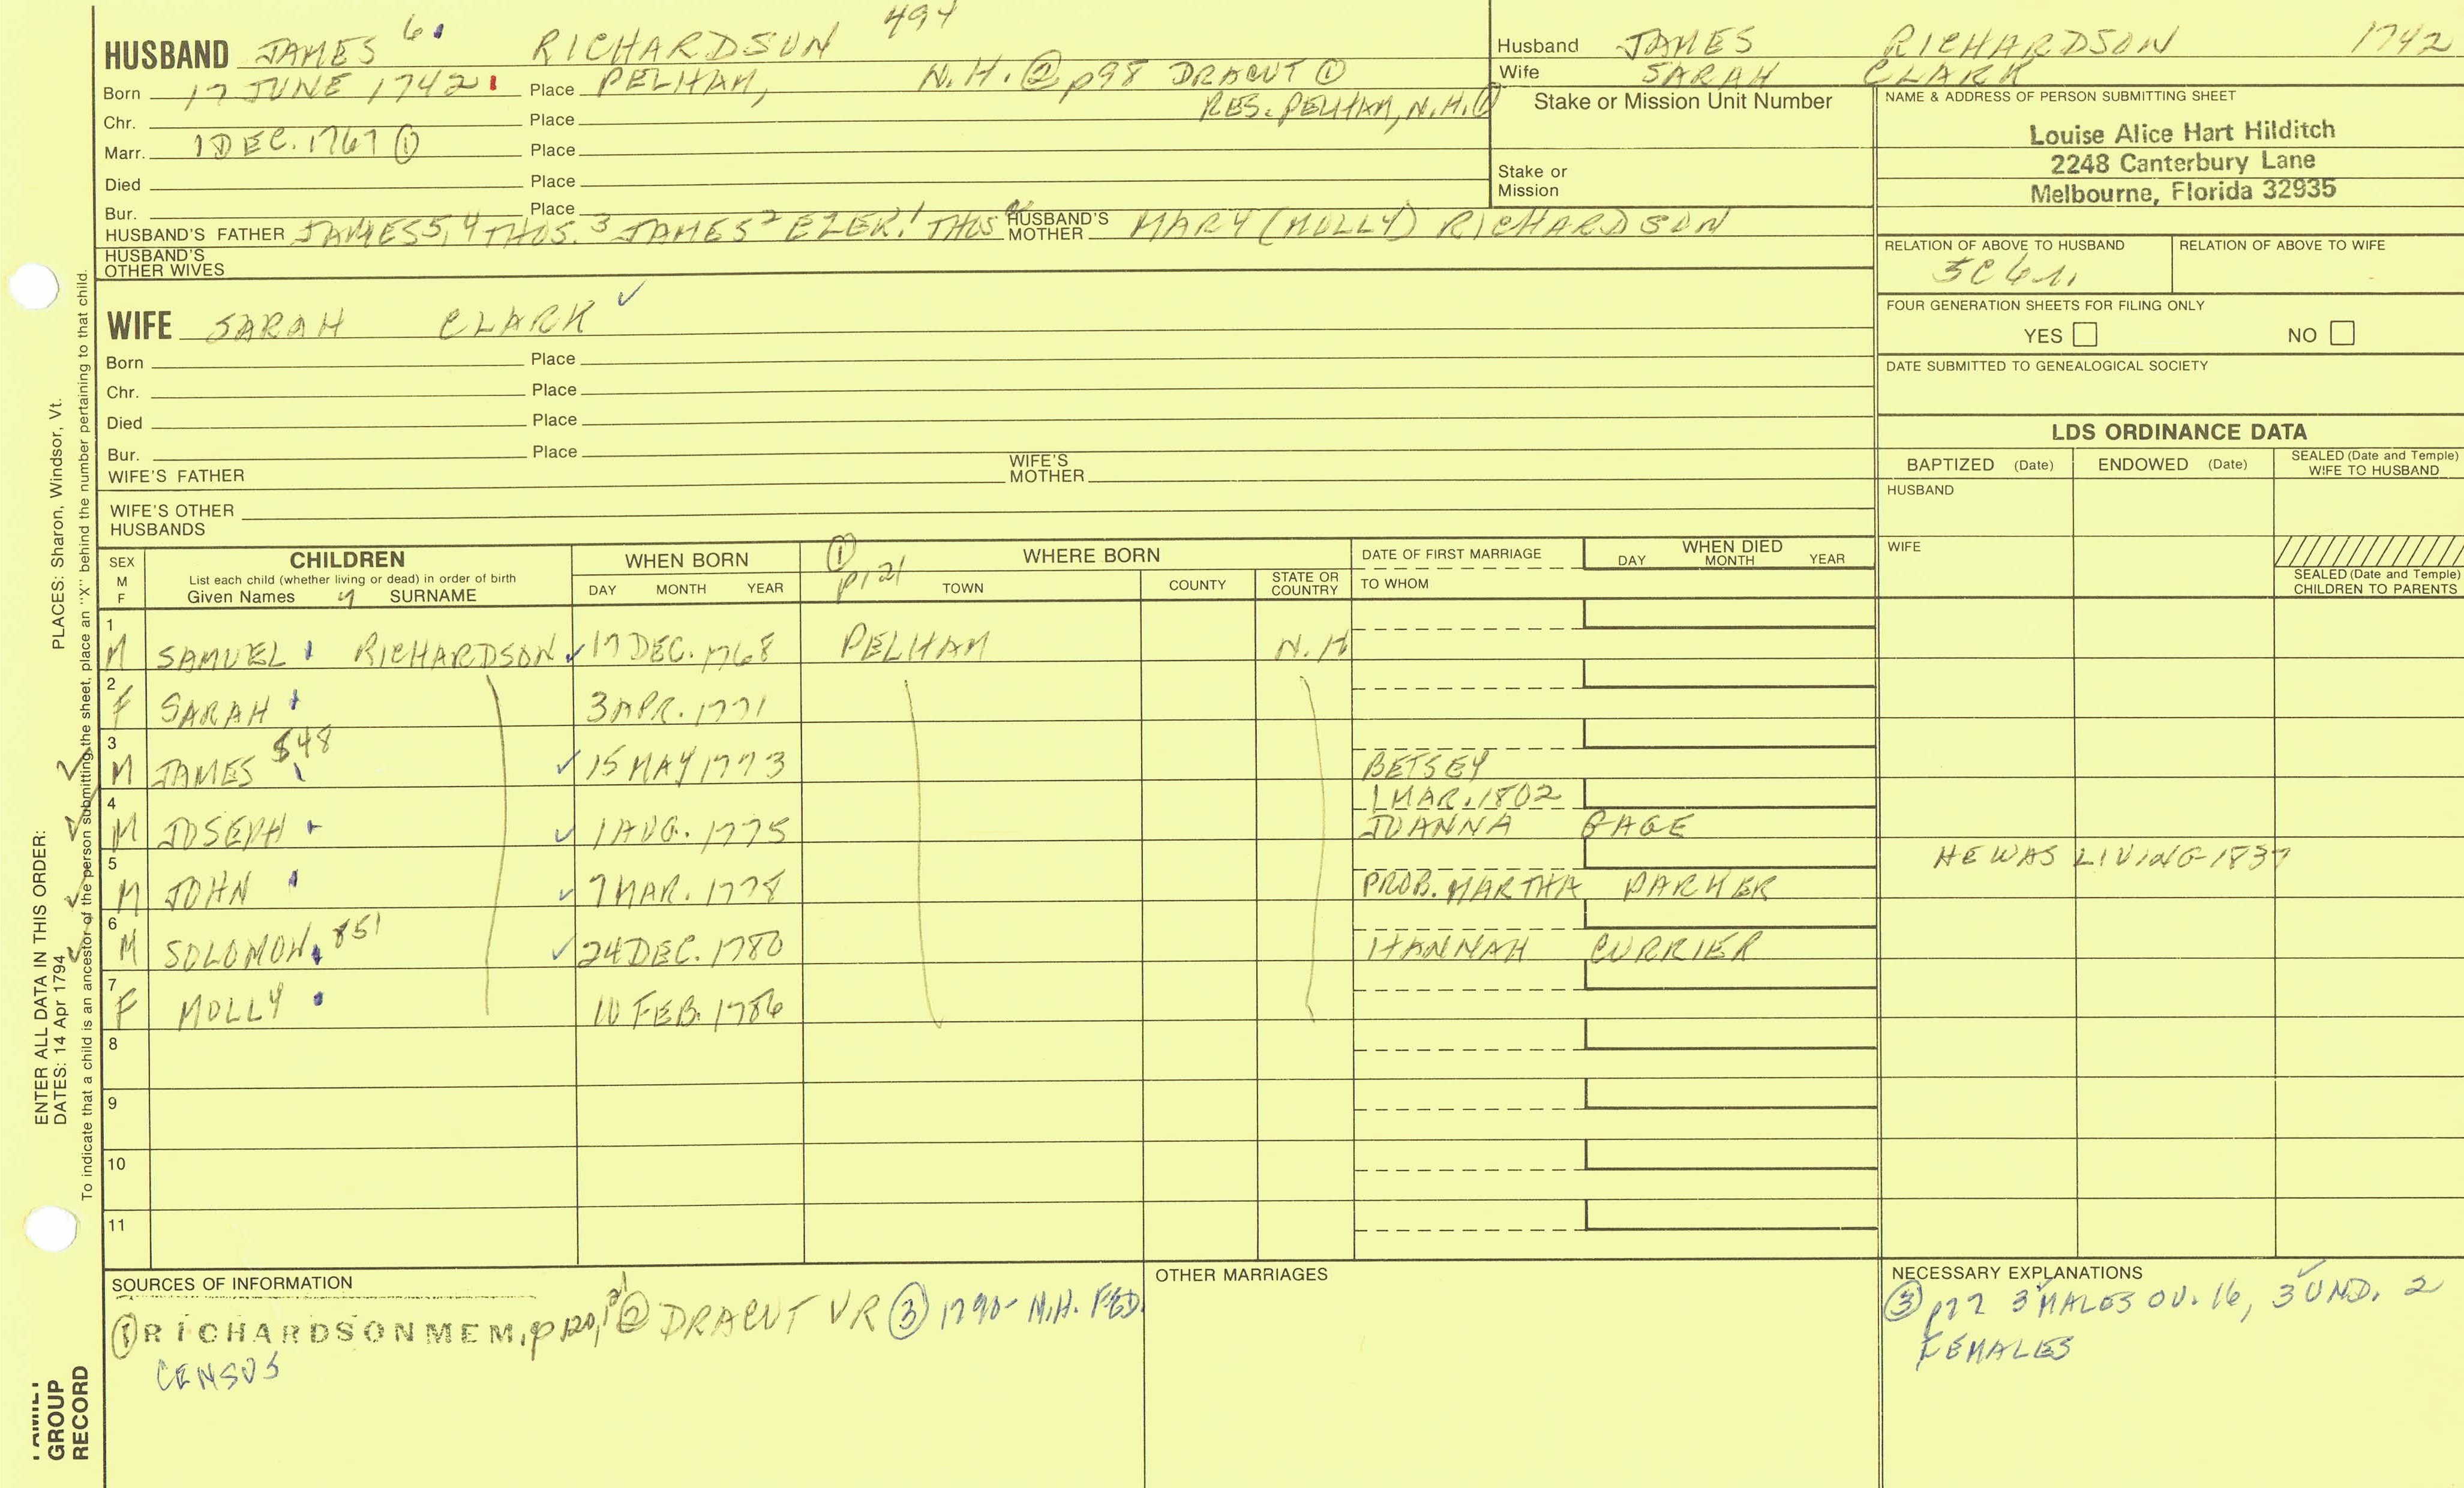 HUSBAND JAMES 6 RICHARDSON 494
Born 17 JUNE 1742 Place PELHAM, N.H. ② p98 DRACUT ①
Chr. Place RES. PELHAM, N.H. ①
Marr. 1 DEC. 1767 ① Place
Died Place
Bur. Place
HUSBAND'S FATHER JAMES 5, 4 THOS. 3 JAMES 2 EZEK. 1 THOS HUSBAND'S MOTHER MARY (MOLLY) RICHARDSON
HUSBAND'S OTHER WIVES
WIFE SARAH CLARK ✓
Born Place
Chr. Place
Died Place
Bur. Place
WIFE'S FATHER WIFE'S MOTHER
WIFE'S OTHER HUSBANDS
Husband JAMES RICHARDSON 1742
Wife SARAH CLARK
Stake or Mission Unit Number
Stake or Mission
NAME & ADDRESS OF PERSON SUBMITTING SHEET
Louise Alice Hart Hilditch
2248 Canterbury Lane
Melbourne, Florida 32935
RELATION OF ABOVE TO HUSBAND RELATION OF ABOVE TO WIFE
5C 6
FOUR GENERATION SHEETS FOR FILING ONLY
YES NO
DATE SUBMITTED TO GENEALOGICAL SOCIETY
LDS ORDINANCE DATA
BAPTIZED (Date) ENDOWED (Date) SEALED (Date and Temple) WIFE TO HUSBAND
HUSBAND
WIFE
SEALED (Date and Temple) CHILDREN TO PARENTS
SEX M F CHILDREN WHEN BORN ① p121 WHERE BORN DATE OF FIRST MARRIAGE WHEN DIED
List each child (whether living or dead) in order of birth
Given Names SURNAME DAY MONTH YEAR TOWN COUNTY STATE OR COUNTRY TO WHOM DAY MONTH YEAR
1 M SAMUEL RICHARDSON ✓ 17 DEC. 1768 PELHAM N.H
2 F SARAH 3 APR. 1771
3 M JAMES 848 ✓ 15 MAY 1773 BETSEY
4 M JOSEPH ✓ 1 AUG. 1775 1 MAR. 1802 JOANNA GAGE
5 M JOHN ✓ 7 MAR. 1778 PROB. MARTHA PARKER HE WAS LIVING 1837
6 M SOLOMON 851 ✓ 24 DEC. 1780 HANNAH CURRIER
7 F MOLLY 10 FEB. 1786
8
9
10
11
SOURCES OF INFORMATION
① RICHARDSON MEM, p120, 121 ② DRACUT VR ③ 1790- N.H. FED.
CENSUS
OTHER MARRIAGES
NECESSARY EXPLANATIONS
③ p77 3 MALES OV. 16, 3 UND. 2
FEMALES
PLACES: Sharon, Windsor, Vt.
ENTER ALL DATA IN THIS ORDER:
DATES: 14 Apr 1794
To indicate that a child is an ancestor of the person submitting the sheet, place an "X" behind the number pertaining to that child.
FAMILY
GROUP
RECORD